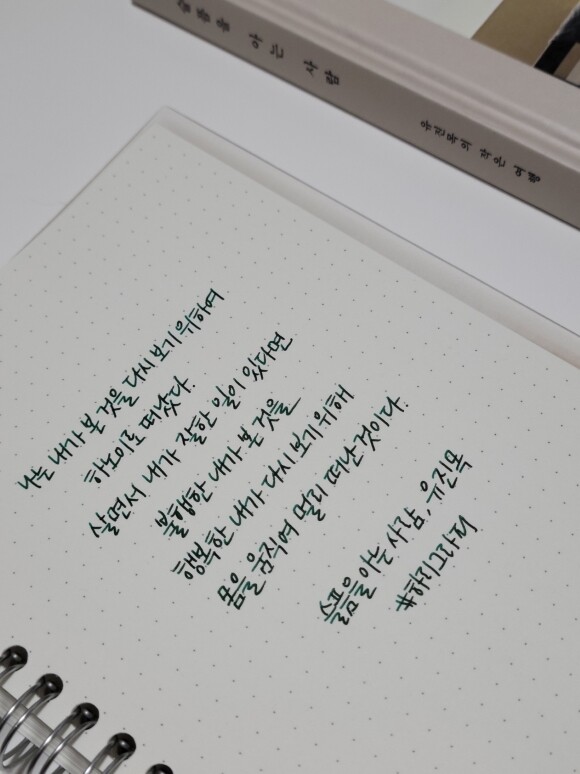 슬픔을 아는 사람
유진목의 작은 여행
나는 내가 본 것을 다시 보기 위하여
하노이로 떠났다.
살면서 내가 잘한 일이 있다면
불행한 내가 본 것을
행복한 내가 다시 보기 위해
몸을 움직여 멀리 떠난 것이다.
슬픔을 아는 사람, 유진목
#하리그라피